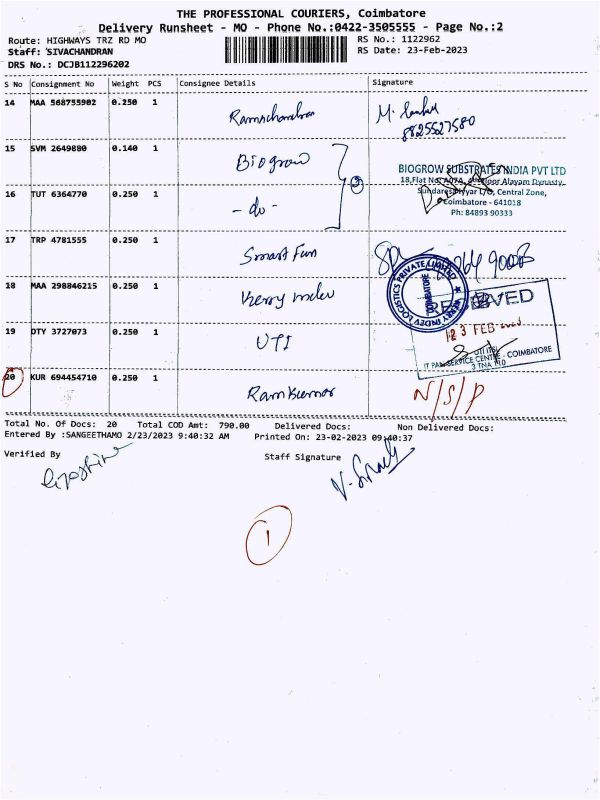 THE PROFESSIONAL COURIERS, Coimbatore
Delivery Runsheet - MO - Phone No.:0422-3505555 - Page No.:2
Route: HIGHWAYS TRZ RD MO
RS No.: 1122962
Staff: SIVACHANDRAN
RS Date: 23-Feb-2023
DRS No.: DCJB112296202
S No Consignment No Weight PCS Consignee Details Signature
14 MAA 568755902 0.250 1 Ramschandran M.
8825527580
15 SVM 2649880 0.140 1 Biogrow
2
BIOGROW SUBSTRATES INDIA PVT LTD
18, Flat No. Floor Alayam Dynasty,
16 TUT 6364770 0.250 1 - do -
Sundaresa Iyyar L/O, Central Zone,
Coimbatore - 641018
Ph: 84893 90333
17 TRP 4781555 0.250 1 Smart Fun
KERRY INDEV LOGISTICS PRIVATE LIMITED
COIMBATORE
18 MAA 298846215 0.250 1 Kerry Indev
RECEIVED
19 DTY 3727073 0.250 1 UTI
23 FEB 2023
UTIITSL
IT PAN SERVICE CENTRE - COIMBATORE
3 TNA 110
20 KUR 694454710 0.250 1 Ramkumar N/S/P
Total No. Of Docs: 20 Total COD Amt: 790.00 Delivered Docs: Non Delivered Docs:
Entered By :SANGEETHAMO 2/23/2023 9:40:32 AM Printed On: 23-02-2023 09:40:37
Verified By Staff Signature
1